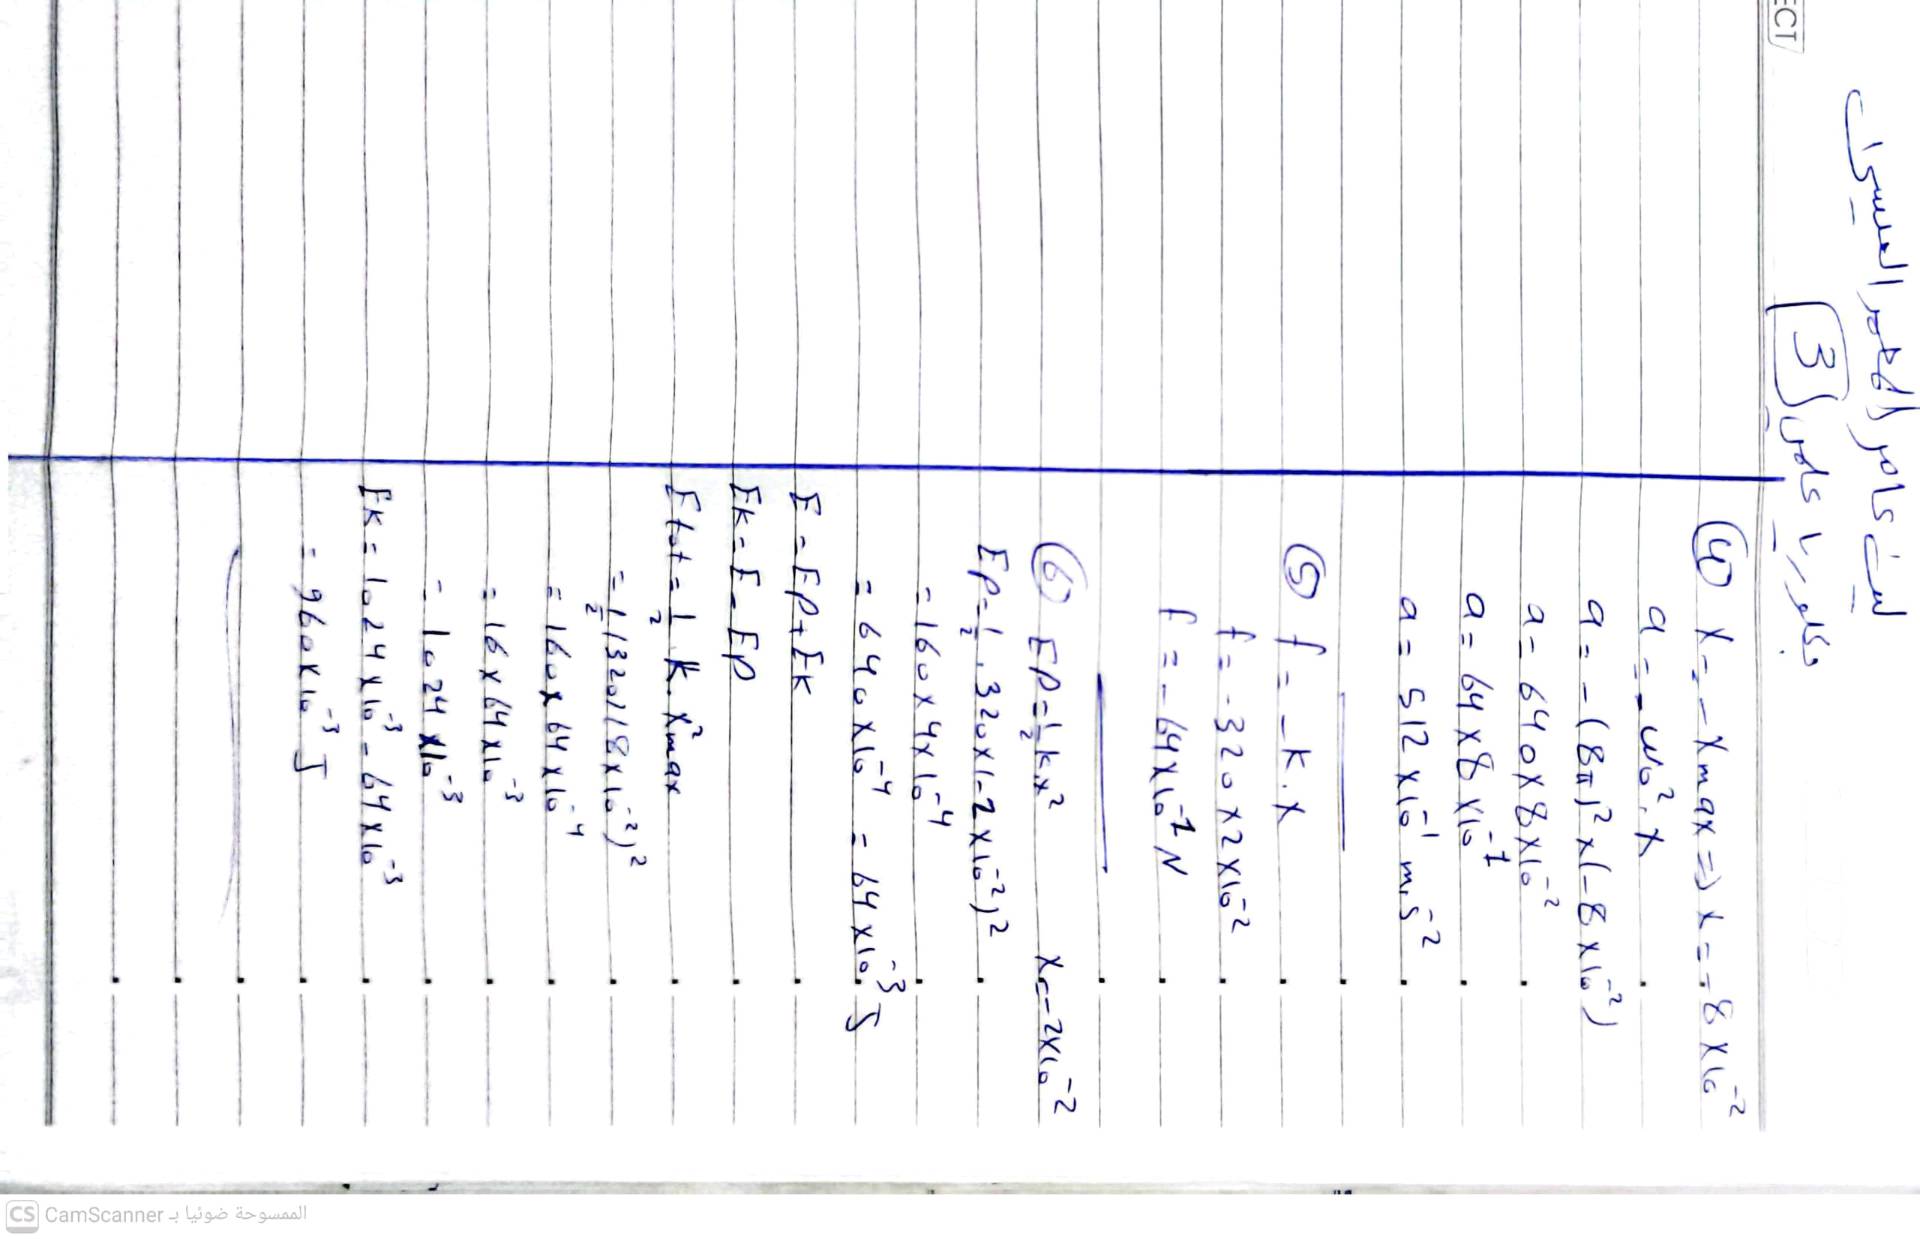 ليث كامل
بكلوريا علمي 3
ECT
④ x = - xmax => x = - 8 x 10⁻²
a = - ω₀² . x
a = - (8π)² x (-8 x 10⁻²)
a = 640 x 8 x 10⁻²
a = 64 x 8 x 10⁻¹
a = 512 x 10⁻¹ m.s⁻²
⑤ f = - k . x
f = - 320 x 2 x 10⁻²
f = - 64 x 10⁻¹ N
⑥ Ep = 1/2 k x² x = -2 x 10⁻²
Ep = 1/2 . 320 x (-2 x 10⁻²)²
= 160 x 4 x 10⁻⁴
= 640 x 10⁻⁴ = 64 x 10⁻³ J
E = Ep + Ek
Ek = E - Ep
Etot = 1/2 . k . x²max
= 1/2 (320) (8 x 10⁻²)²
= 160 x 64 x 10⁻⁴
= 16 x 64 x 10⁻³
= 1024 x 10⁻³
Ek = 1024 x 10⁻³ - 64 x 10⁻³
= 960 x 10⁻³ J
CS CamScanner الممسوحة ضوئيا بـ